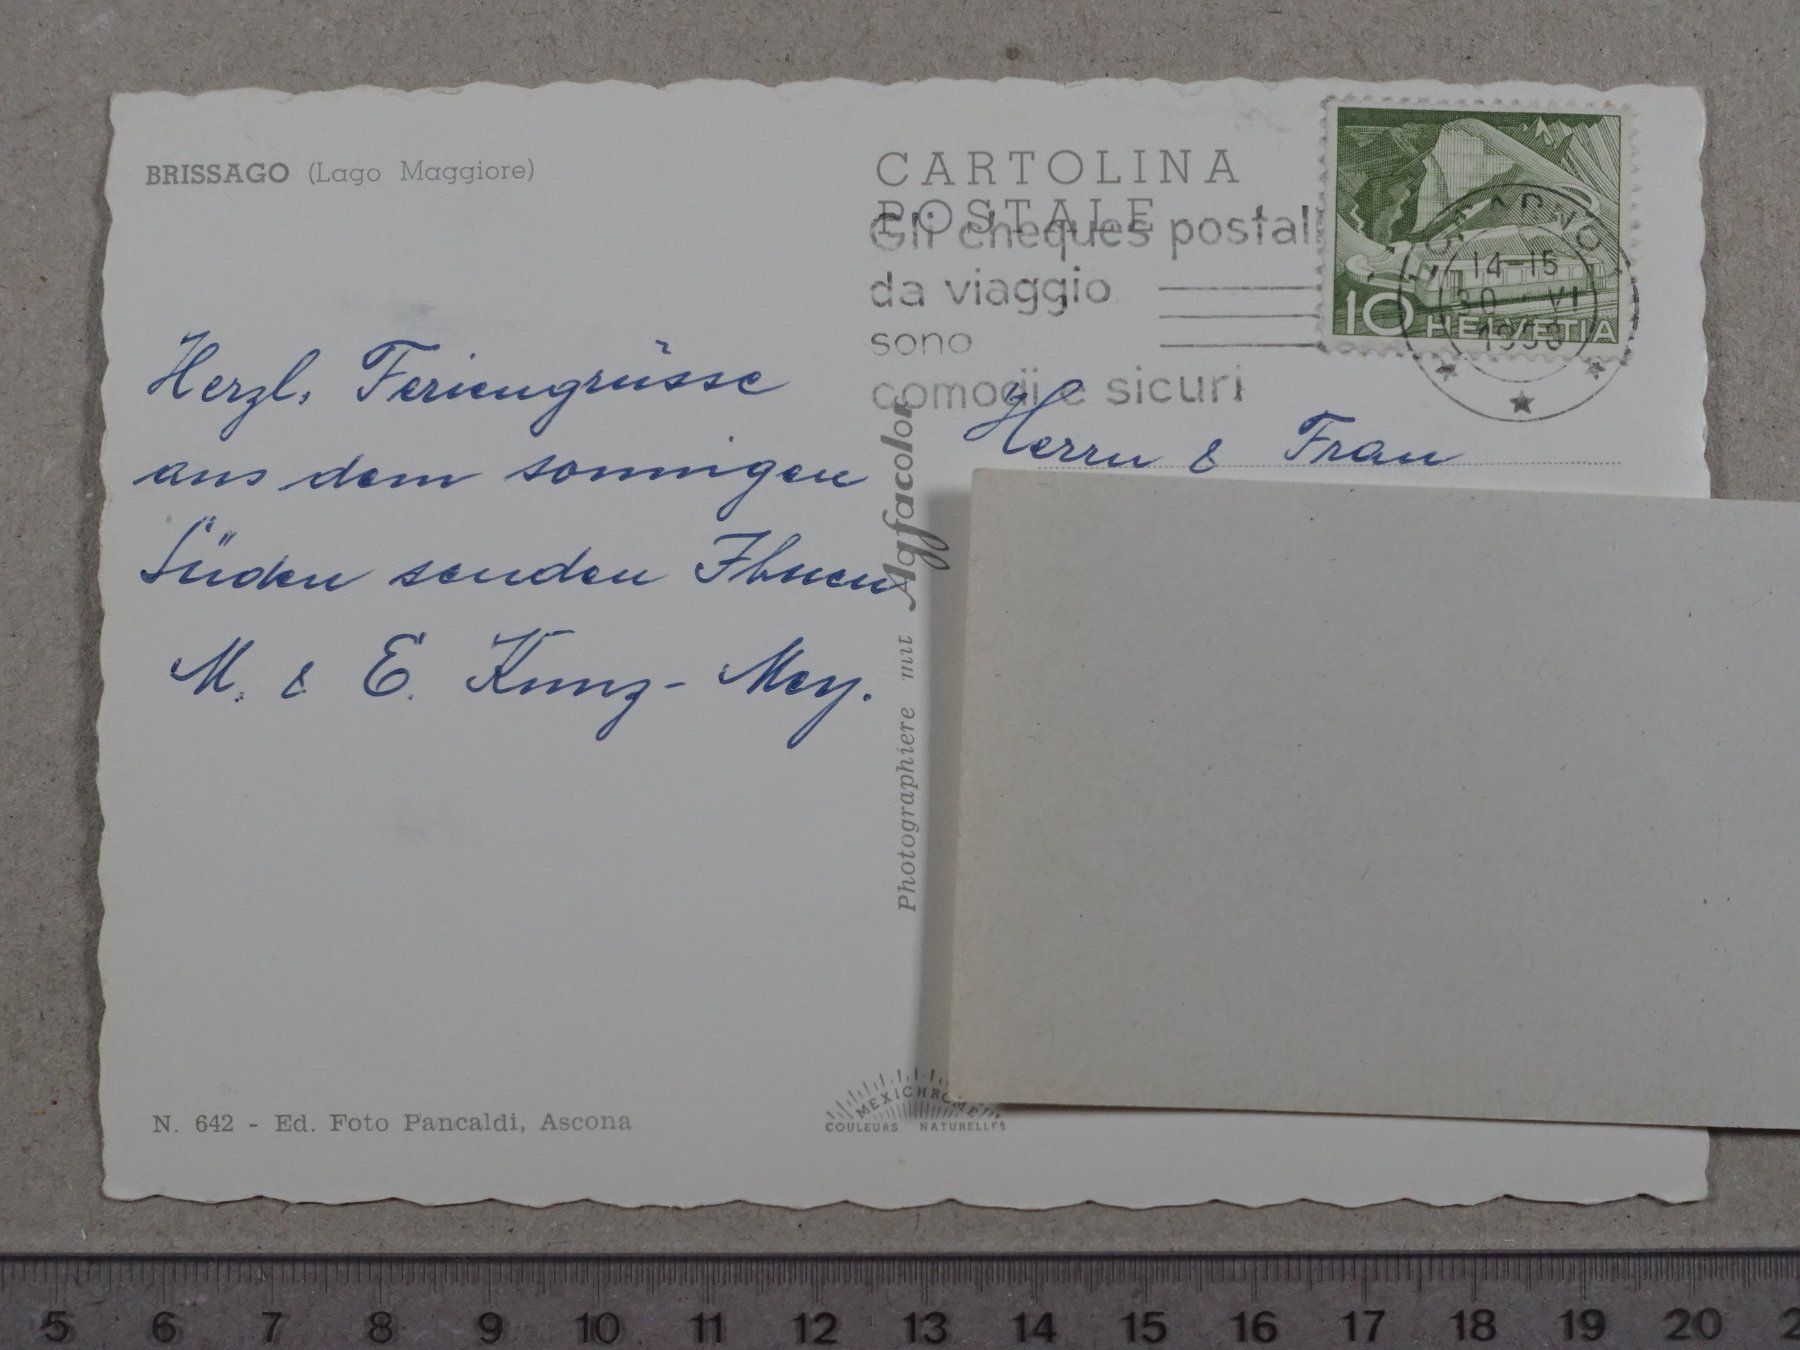 BRISSAGO (Lago Maggiore)
CARTOLINA
POSTALE
Gli cheques postali
da viaggio
sono
comodi e sicuri
10 HELVETIA
LOCARNO
14-15
30. VI
Herzl. Feriengrüsse
aus dem sonnigen
Süden senden Ihnen
M. & E. Kunz-Mey.
Herrn & Frau
Photographiere mit Agfacolor
N. 642 - Ed. Foto Pancaldi, Ascona
MEXICHROME
COULEURS NATURELLES
5 6 7 8 9 10 11 12 13 14 15 16 17 18 19 20